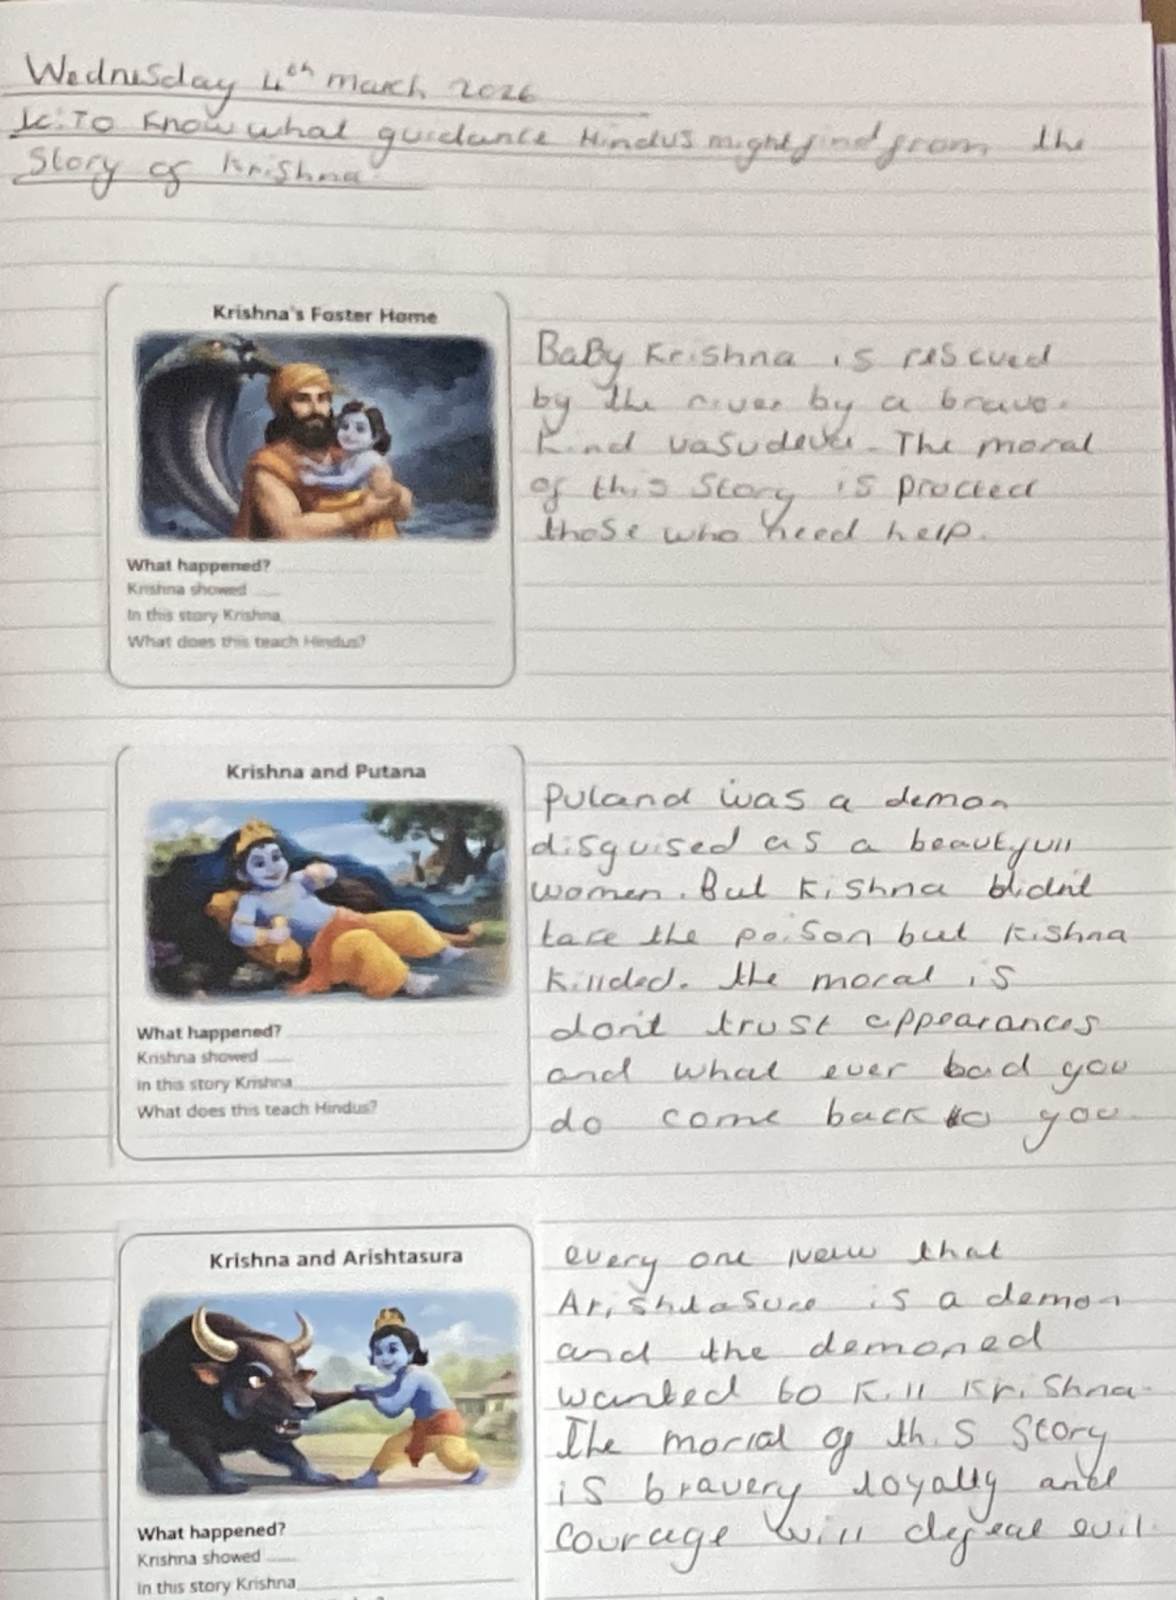 Wednesday 4th march 2026
Lc: To Know what guidance Hindus might find from the
Story of Krishna
Krishna's Foster Home
What happened?
Krishna showed ____
In this story Krishna____
What does this teach Hindus?
BaBy Krishna is rescued
by the river by a brave.
kind vasudeva. The moral
of this Story is procted
those who need help.
Krishna and Putana
What happened?
Krishna showed ____
In this story Krishna____
What does this teach Hindus?
Puland was a demon
disguised as a beautyull
women. But Kishna didn't
take the poison but Kishna
Killded. the moral is
don't trust appearances
and what ever bad you
do come back to you.
Krishna and Arishtasura
What happened?
Krishna showed ____
In this story Krishna____
every one New that
Arishtasure is a demon
and the demoned
wanted to Kill Krishna.
The morial of this Story
is bravery loyalty and
Courage will defeat evil.